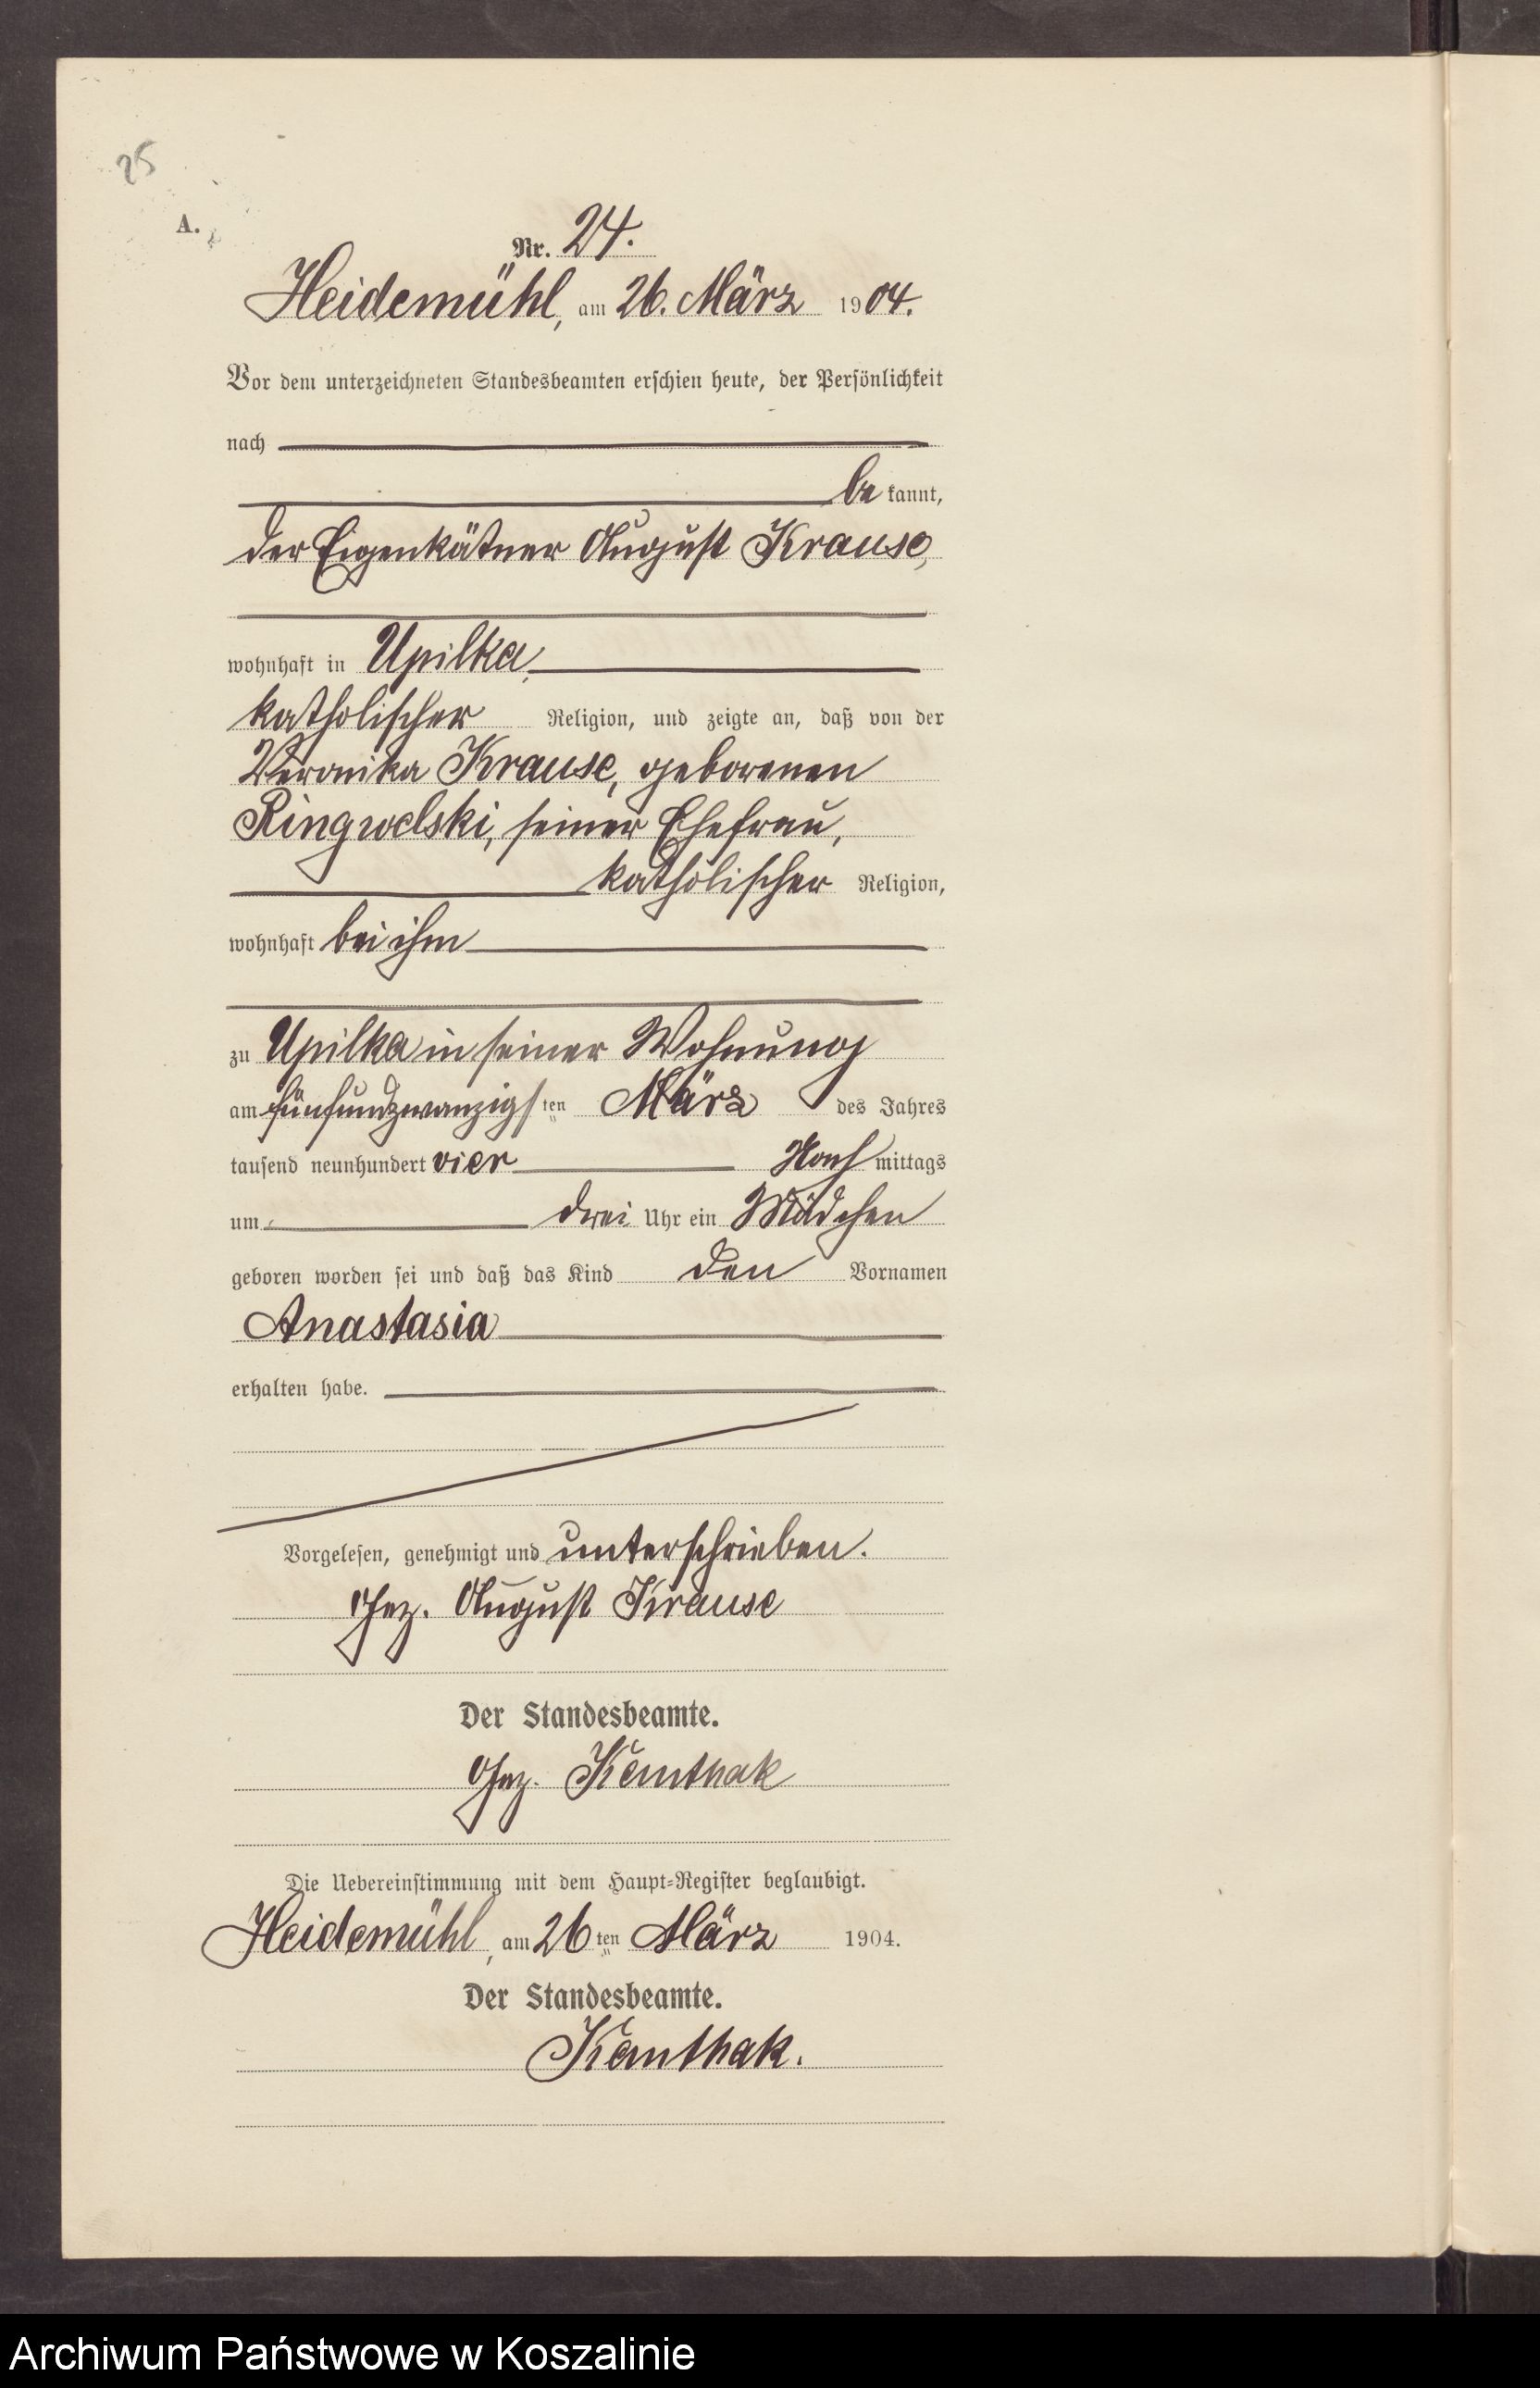 25
A.
Nr. 24.
Heidemühl, am 26. März 1904.
Vor dem unterzeichneten Standesbeamten erschien heute, der Persönlichkeit
nach
be kannt,
der Eigenkätner August Krause,
wohnhaft in Upilka,
katholischer Religion, und zeigte an, daß von der
Veronika Krause, geborenen
Ringwelski, seiner Ehefrau,
katholischer Religion,
wohnhaft bei ihm
zu Upilka in seiner Wohnung
am fünfundzwanzigsten März des Jahres
tausend neunhundert vier Nachmittags
um drei Uhr ein Mädchen
geboren worden sei und daß das Kind den Vornamen
Anastasia
erhalten habe.
Vorgelesen, genehmigt und unterschrieben.
Gez. August Krause
Der Standesbeamte.
Gez. Kemthak
Die Uebereinstimmung mit dem Haupt-Register beglaubigt.
Heidemühl, am 26ten März 1904.
Der Standesbeamte.
Kemthak.
Archiwum Państwowe w Koszalinie